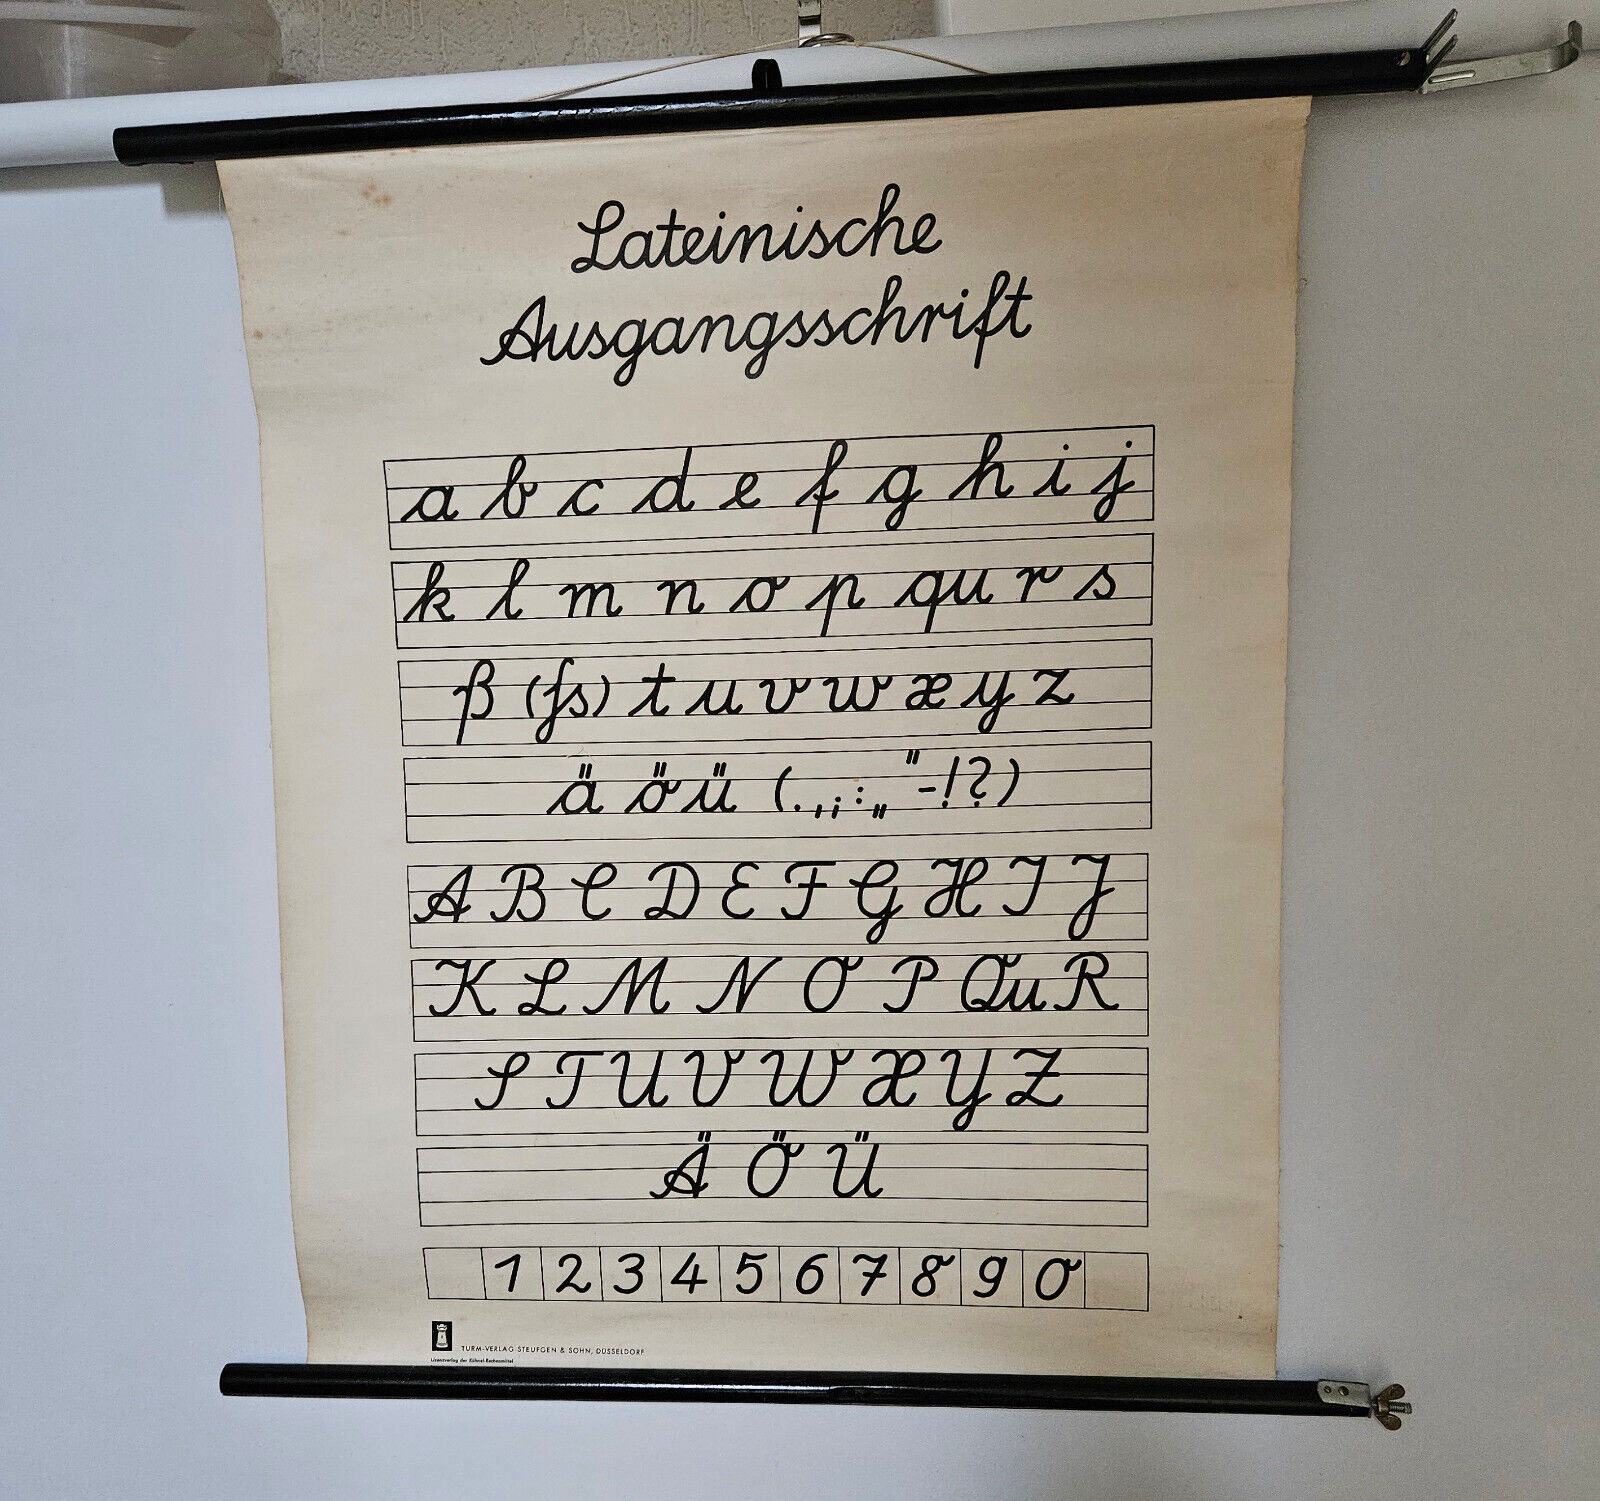 Lateinische
Ausgangsschrift
a b c d e f g h i j
k l m n o p qu r s
ß (ſs) t u v w x y z
ä ö ü (.,;:„"-!?)
A B C D E F G H I J
K L M N O P Qu R
S T U V W X Y Z
Ä Ö Ü
1 2 3 4 5 6 7 8 9 0
TURM-VERLAG STEUFGEN & SOHN, DÜSSELDORF
Lizenzverlag der Kühnel-Rechenmittel